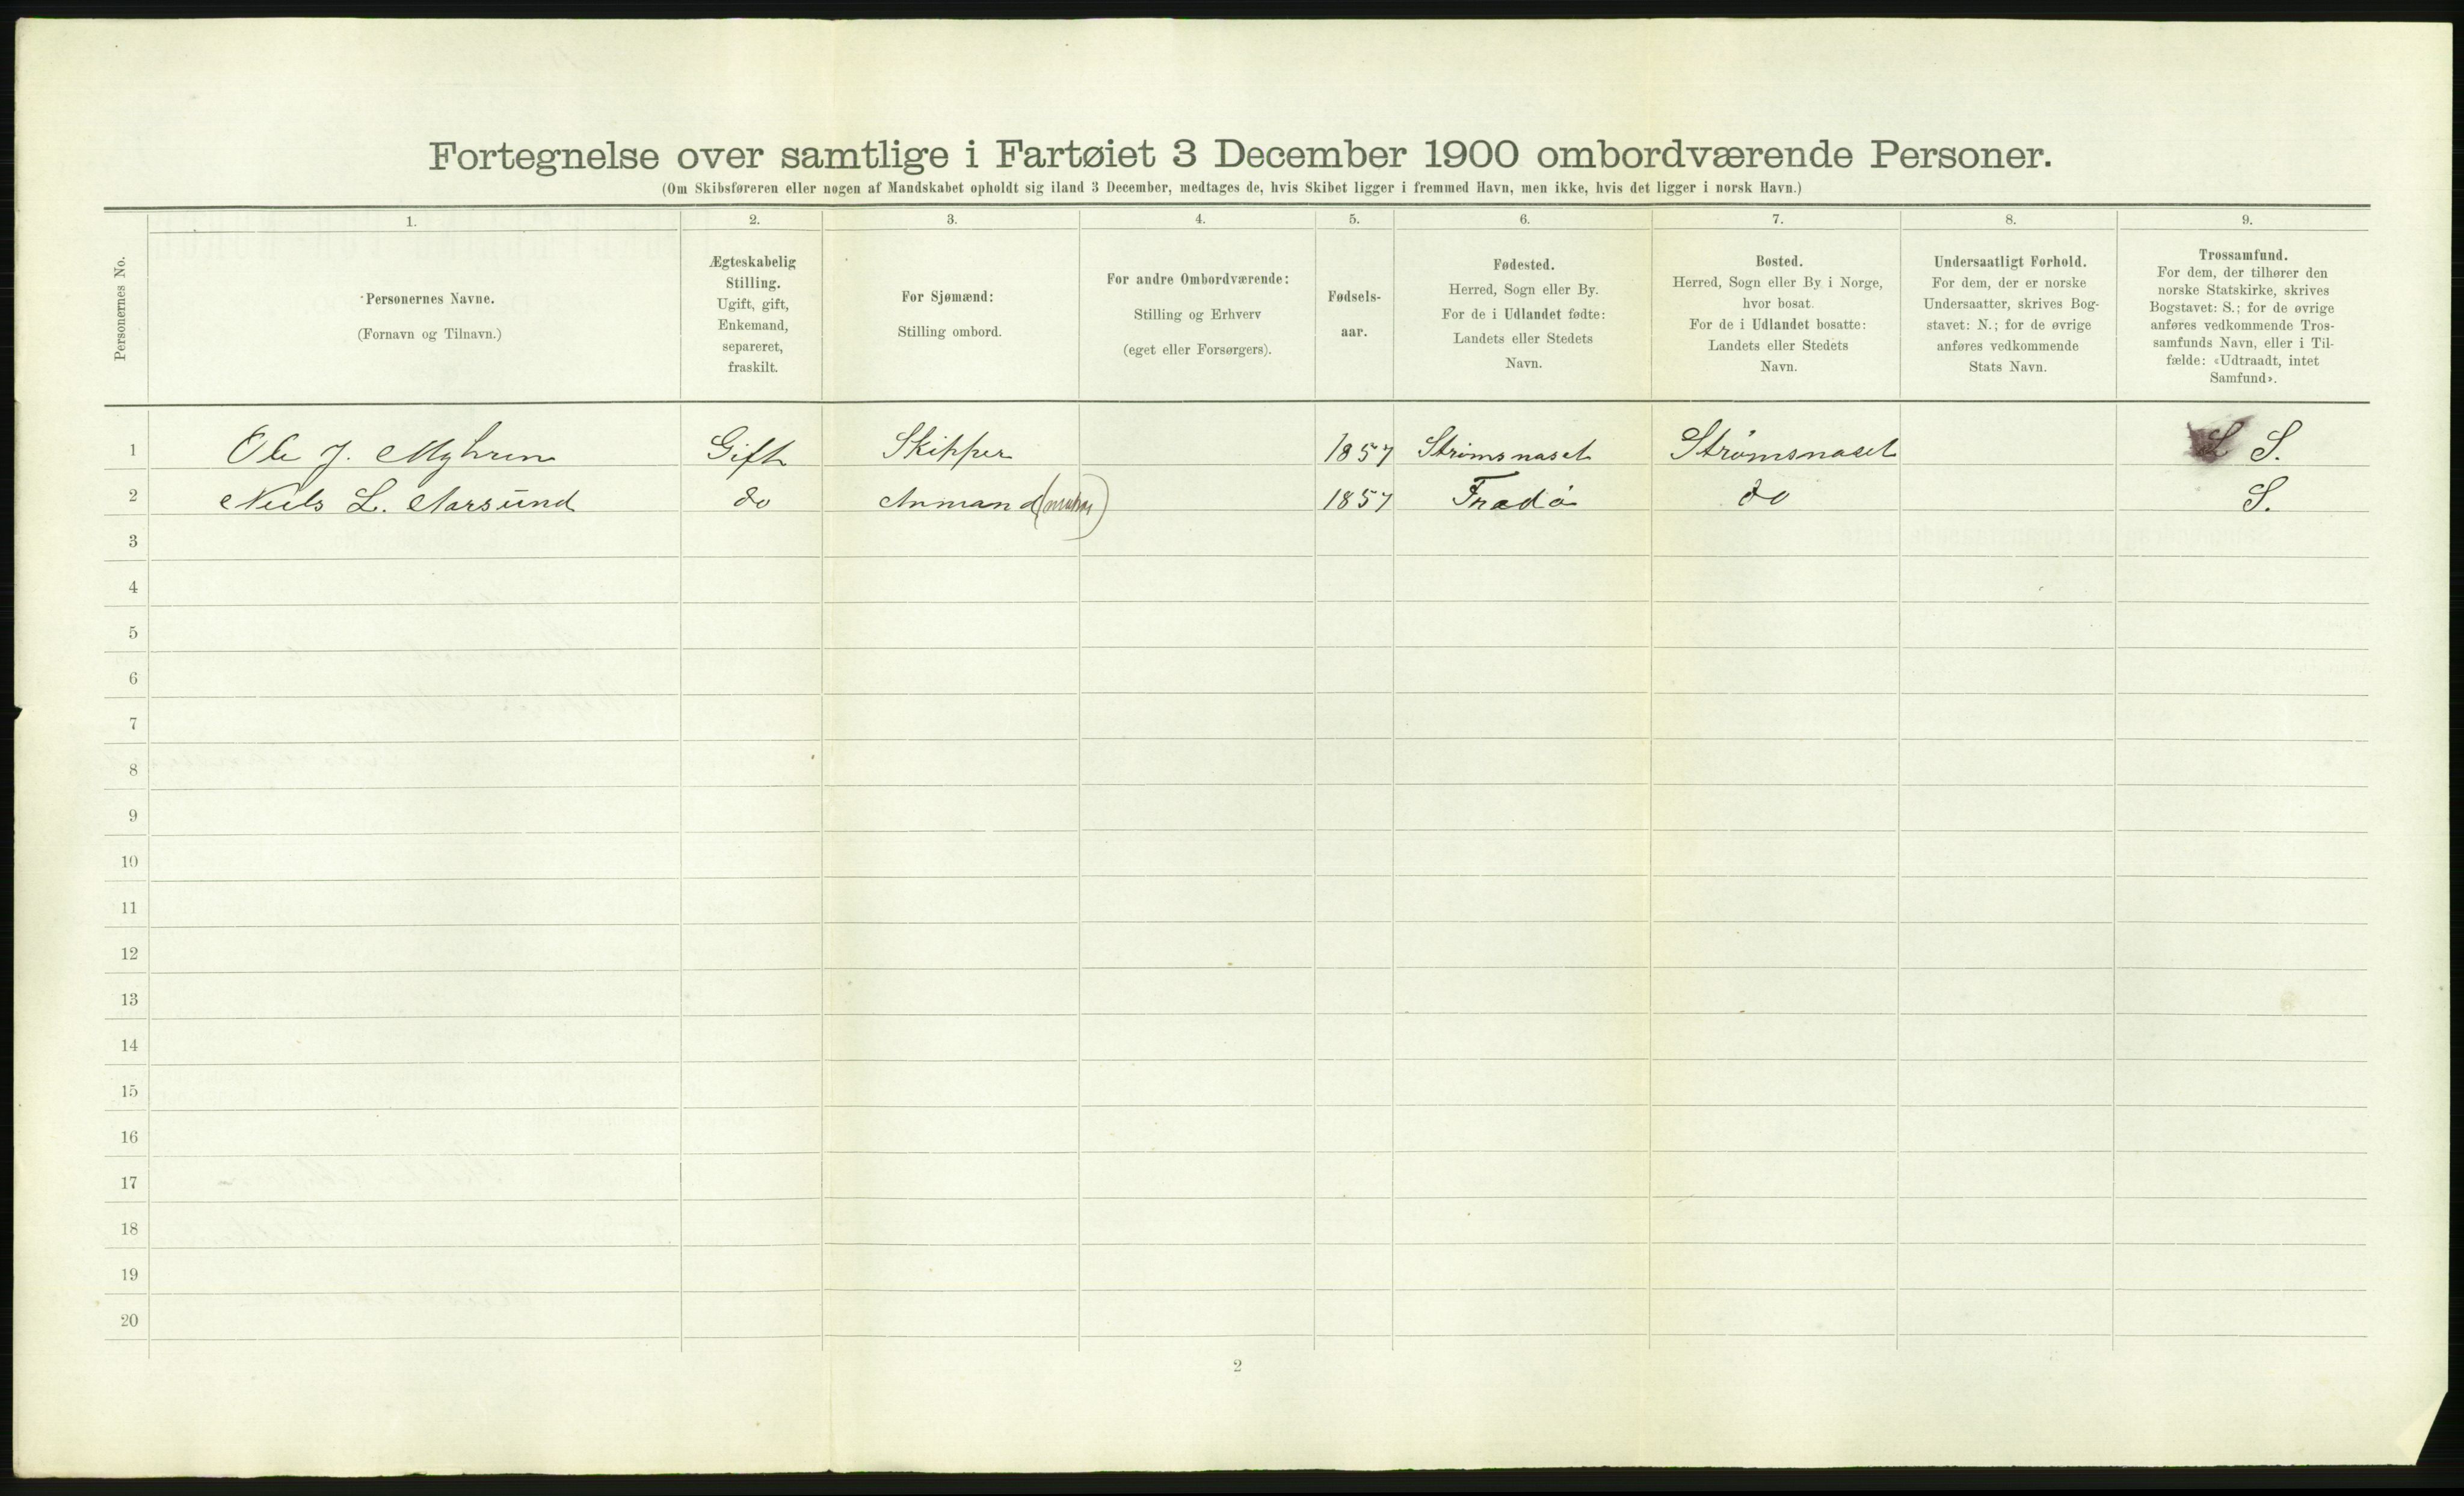 Fortegnelse over samtlige i Fartøiet 3 December 1900 ombordværende Personer.
(Om Skibsføreren eller nogen af Mandskabet opholdt sig iland 3 December, medtages de, hvis Skibet ligger i fremmed Havn, men ikke, hvis det ligger i norsk Havn.)
Personernes No.
1.
Personernes Navne.
(Fornavn og Tilnavn.)
2.
Ægteskabelig
Stilling.
Ugift, gift,
Enkemand,
separeret,
fraskilt.
3.
For Sjømænd:
Stilling ombord.
4.
For andre Ombordværende:
Stilling og Erhverv
(eget eller Forsørgers).
5.
Fødsels-
aar.
6.
Fødested.
Herred, Sogn eller By.
For de i Udlandet fødte:
Landets eller Stedets
Navn.
7.
Bosted.
Herred, Sogn eller By i Norge,
hvor bosat.
For de i Udlandet bosatte:
Landets eller Stedets
Navn.
8.
Undersaatligt Forhold.
For dem, der er norske
Undersaatter, skrives Bog-
stavet: N.; for de øvrige
anføres vedkommende
Stats Navn.
9.
Trossamfund.
For dem, der tilhører den
norske Statskirke, skrives
Bogstavet: S.; for de øvrige
anføres vedkommende Tros-
samfunds Navn, eller i Til-
fælde: «Udtraadt, intet
Samfund».
1 Ole J. Myhren Gift Skipper 1857 Strømsnæset Strømsnæset S.
2 Niels L. Aarsund do 1857 do S.
3
4
5
6
7
8
9
10
11
12
13
14
15
16
17
18
19
20
2